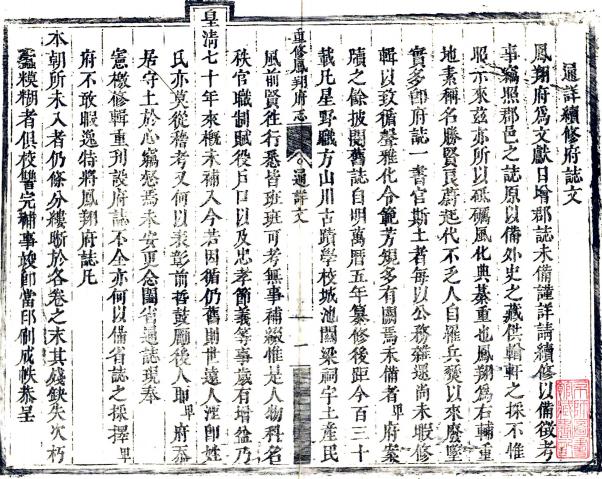 通詳續修府誌文
鳳翔府為文獻日增郡誌未備謹詳請續修以備徵考
事竊照郡邑之誌原以備外史之藏供輶軒之採不惟
昭示來茲亦所以砥礪風化典綦重也鳳翔為右輔重
地素稱名勝賢良蔚起代不乏人自罹兵燹以來廢墜
實多卽府誌一書官斯土者每以公務雜遝尚未暇修
輯以致循聲雅化令範芳規多有闕焉未備者卑府案
牘之餘披閱舊誌自明萬曆五年纂修後距今百三十
載凡星野職方山川古蹟學校城池關梁祠宇土產民
風前賢往行悉皆班班可考無事補綴惟是人物科名
秩官職制賦役戶口以及忠孝節義等事歲有增益乃
重修鳳翔府志
通詳文
一
皇清七十年來概未補入今若因循仍舊則世遠人湮卽姓
氏亦莫從稽考又何以表彰前哲鼓勵後人耶卑府忝
居守土於心竊愁焉未安更念闔省通誌現奉
憲檄修輯重刊設府誌不全亦何以備省誌之採擇卑
府不敢暇逸特將鳳翔府誌凡
本朝所未入者仍條分縷晰於各卷之末其殘缺失次朽
蠹糢糊者俱校讐完補事竣卽當印刷成帙恭呈